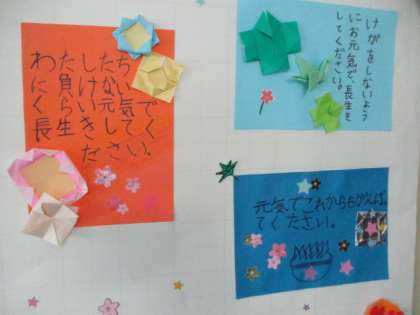 わたしたち
に負けない
くらい元気で
長生きしてく
ださい。
けがをしないよう
にお元気で、長生きを
してください。
元気でこれからもがんばっ
てください。